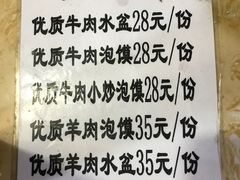 优质牛肉水盆28元/份
优质牛肉泡馍28元/份
优质牛肉小炒泡馍28元/份
优质羊肉泡馍35元/份
优质羊肉水盆35元/份